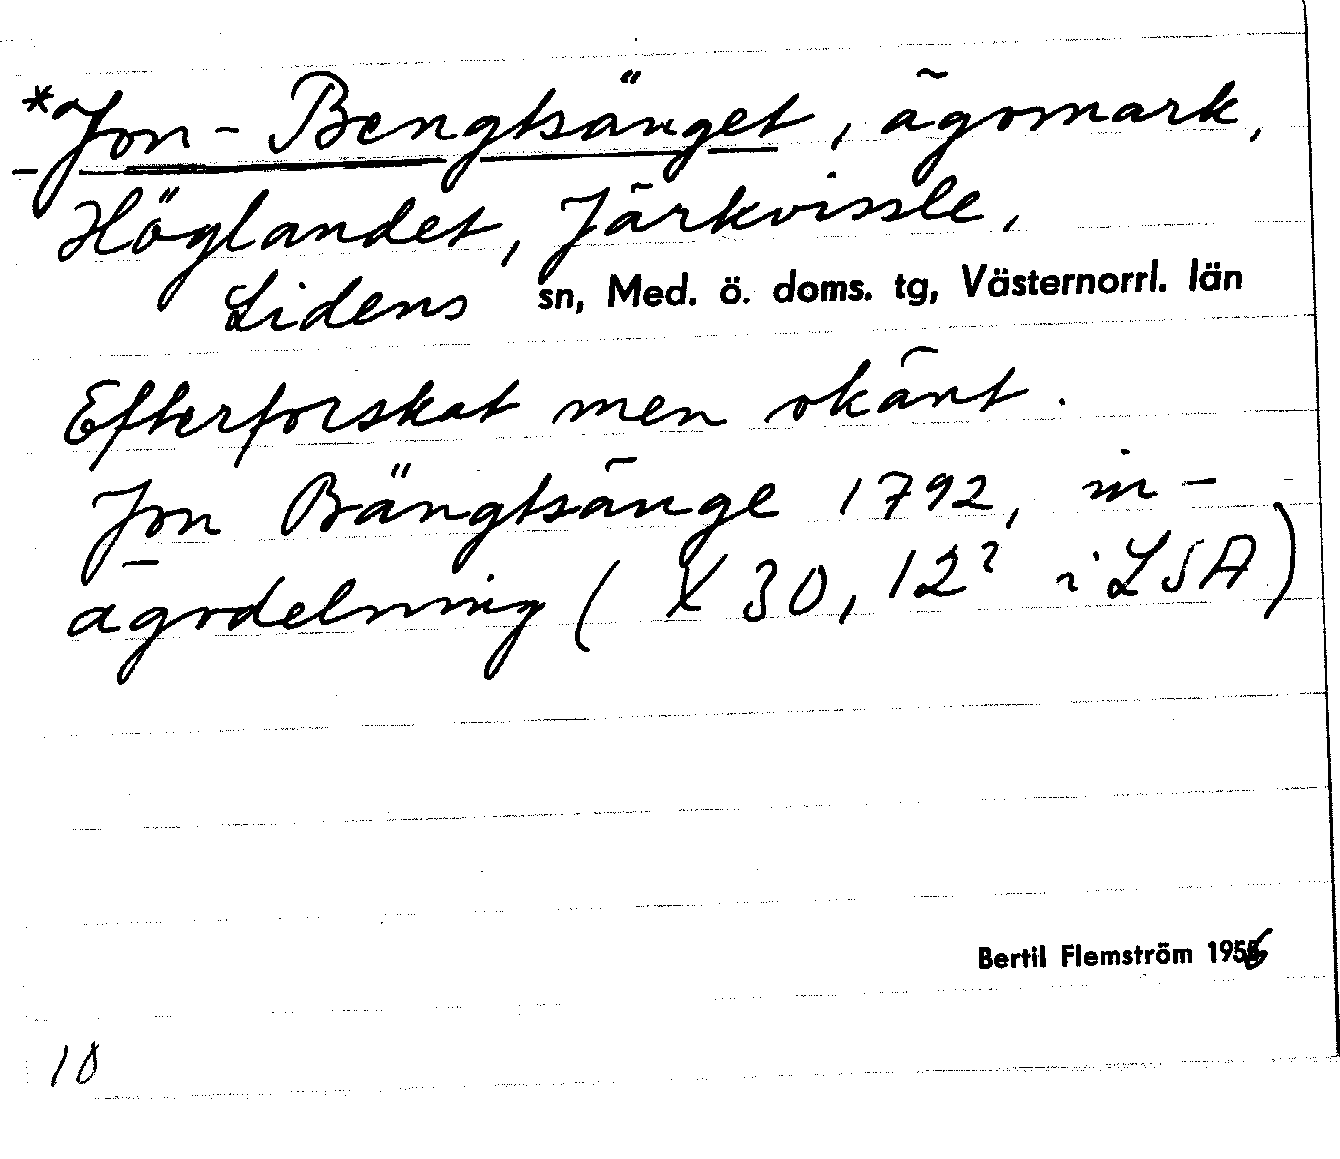 *Jon-Bengtsänget, ägomark,
Höglandet, Järkvissle,
Lidens sn, Med. ö. doms. tg, Västernorrl. län
Efterforskat men okänt.
Jon Bängtsänge 1792, in-
ägodelning (X 30, 12² i LSA)
Bertil Flemström 1956
10